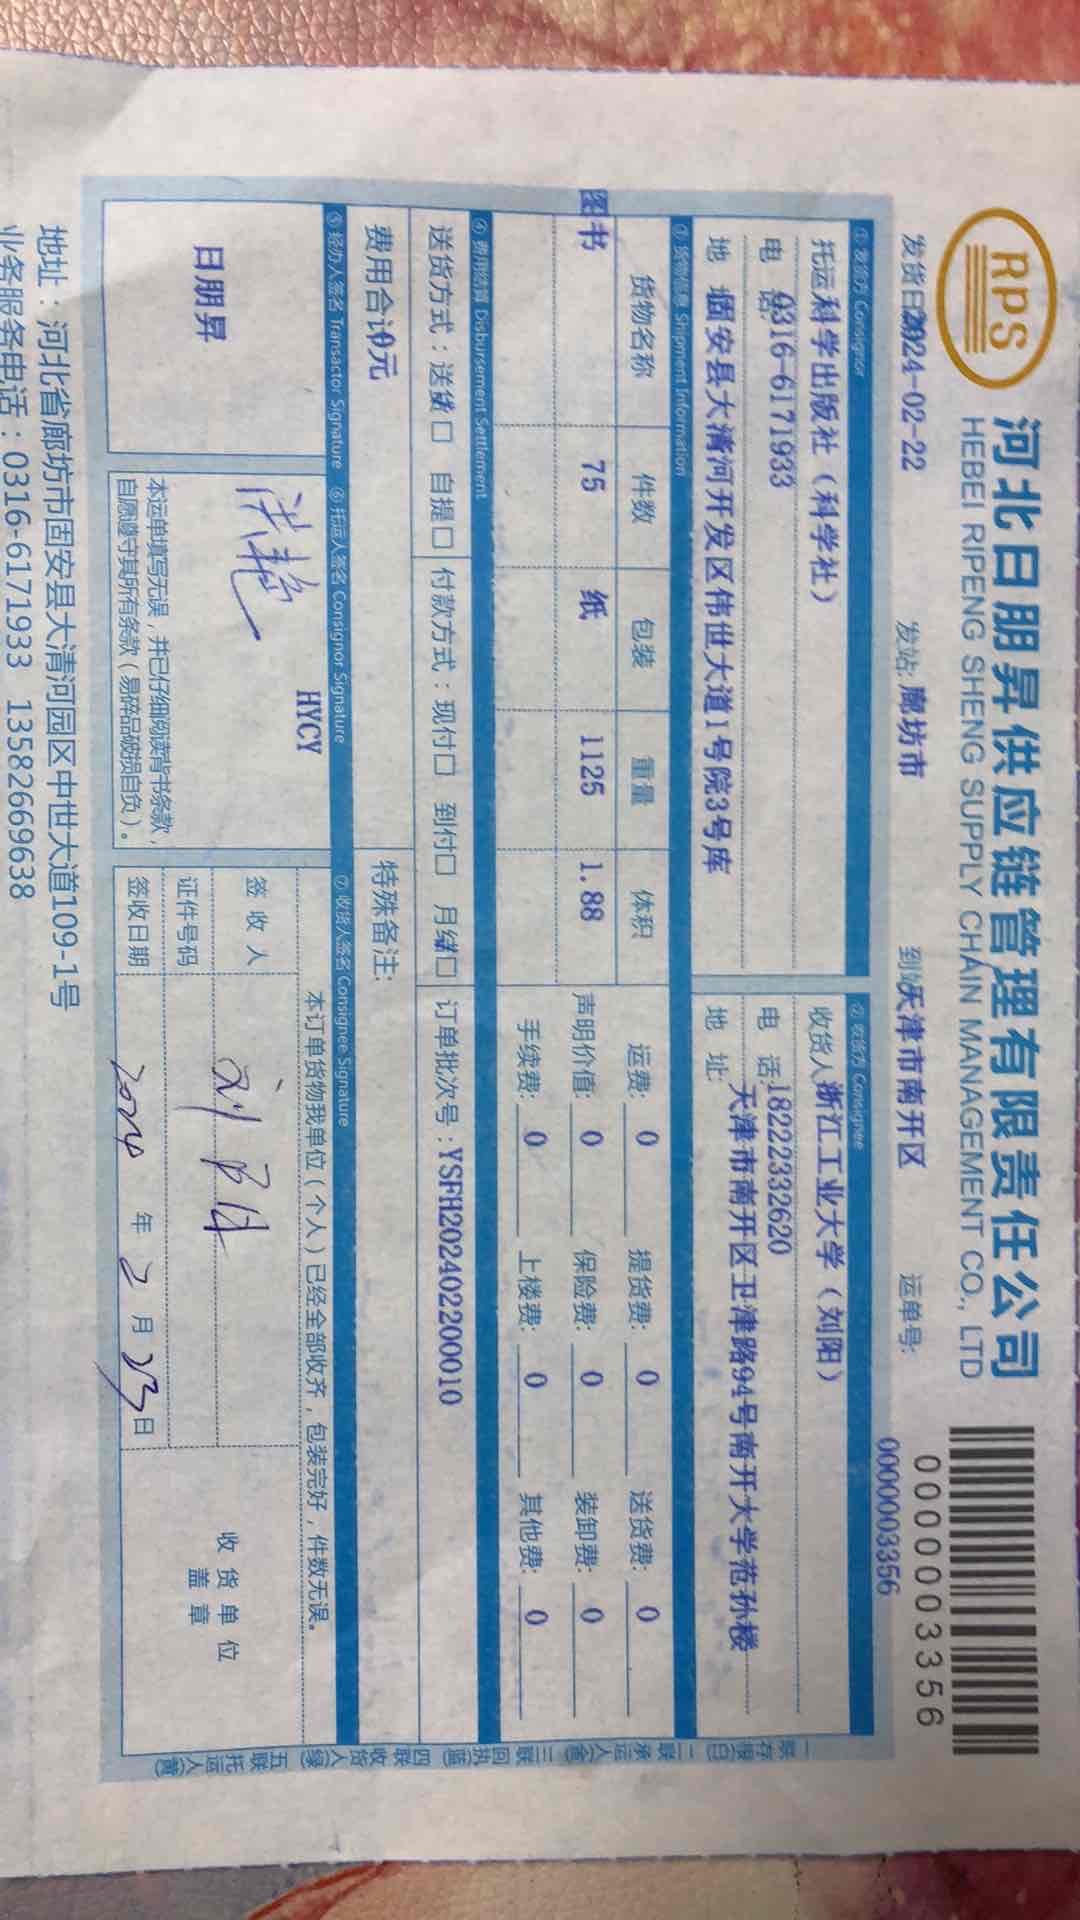 RPS
河北日朋昇供应链管理有限责任公司
HEBEI RIPENG SHENG SUPPLY CHAIN MANAGEMENT CO., LTD
0000003356
发货日期2024-02-22 发站:廊坊市 到站天津市南开区 运单号: 0000003356
① 发货方 Consignor
托运科学出版社（科学社）
电 话0316-6171933
地 固安县大清河开发区伟世大道1号院3号库
② 收货方 Consignee
收货人浙江工业大学（刘阳）
电 话:18222332620
地 址: 天津市南开区卫津路94号南开大学范孙楼
③ 货物信息 Shipment Information
货物名称 件数 包装 重量 体积
图书 75 纸 1125 1.88
运费: 0 提货费: 0 送货费: 0
声明价值: 0 保险费: 0 装卸费: 0
手续费: 0 上楼费: 0 其他费: 0
④ 费用结算 Disbursement Settlement
送货方式：送货□ 自提□ 付款方式：现付□ 到付□ 月结□ 订单批次号：YSFH202402200010
费用合计0元 特殊备注:
⑤ 经办人签名 Transactor Signature ⑥ 托运人签名 Consignor Signature ⑦ 收货人签名 Consignee Signature
日朋昇
HYCY
本运单填写无误，并已仔细阅读背书条款，
自愿遵守其所有条款（易碎品破损自负）。
本订单货物我单位（个人）已经全部收齐，包装完好，件数无误。
签 收 人 刘阳
证件号码
签收日期 2024 年 2 月 23 日
收 货 单 位
盖 章
一联存根(白) 二联承运人(金) 三联回执(蓝) 四联收货人(绿) 五联托运人(黄)
地址：河北省廊坊市固安县大清河园区中世大道109-1号
业务服务电话：0316-6171933 13582669638